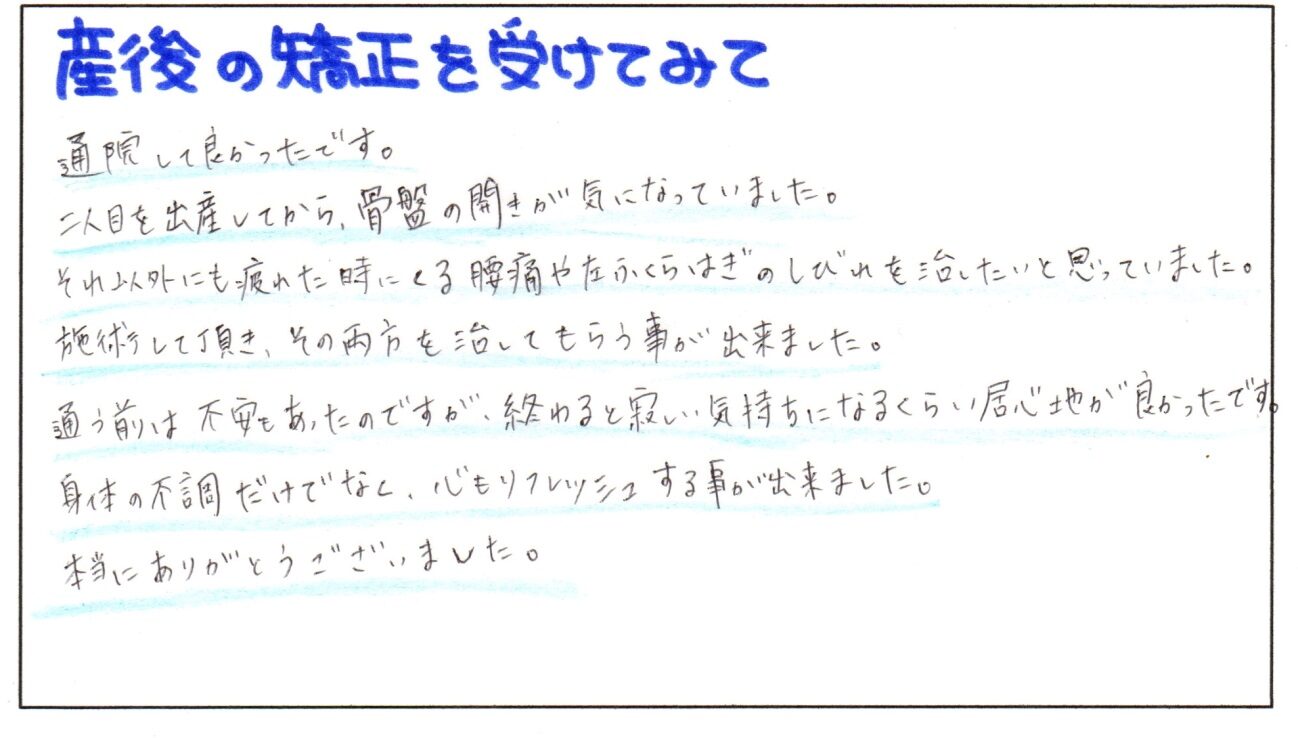 産後の矯正を受けてみて
通院して良かったです。
二人目を出産してから、骨盤の開きが気になっていました。
それ以外にも疲れた時にくる腰痛や左ふくらはぎのしびれを治したいと思っていました。
施術して頂き、その両方を治してもらう事が出来ました。
通う前は不安もあったのですが、終わると寂しい気持ちになるくらい居心地が良かったです。
身体の不調だけでなく、心もリフレッシュする事が出来ました。
本当にありがとうございました。